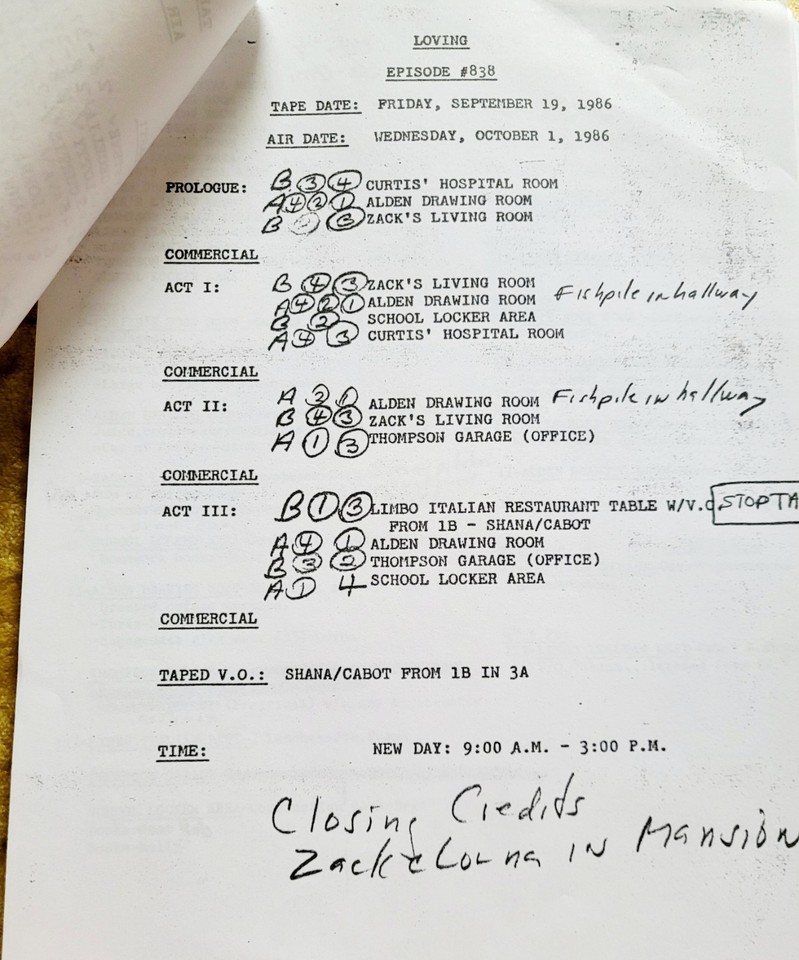 LOVING
EPISODE #838
TAPE DATE: FRIDAY, SEPTEMBER 19, 1986
AIR DATE: WEDNESDAY, OCTOBER 1, 1986
PROLOGUE: B 3 4 CURTIS' HOSPITAL ROOM
A 4 2 1 ALDEN DRAWING ROOM
B 3 ZACK'S LIVING ROOM
COMMERCIAL
ACT I: B 4 3 ZACK'S LIVING ROOM
A 4 2 1 ALDEN DRAWING ROOM Fishpile in hallway
B 2 SCHOOL LOCKER AREA
A 4 3 CURTIS' HOSPITAL ROOM
COMMERCIAL
ACT II: A 2 1 ALDEN DRAWING ROOM Fishpile in hallway
B 4 3 ZACK'S LIVING ROOM
A 1 3 THOMPSON GARAGE (OFFICE)
COMMERCIAL
ACT III: B 1 3 LIMBO ITALIAN RESTAURANT TABLE W/V.O. STOP TA
FROM 1B - SHANA/CABOT
A 4 1 ALDEN DRAWING ROOM
B 3 2 THOMPSON GARAGE (OFFICE)
A 1 4 SCHOOL LOCKER AREA
COMMERCIAL
TAPED V.O.: SHANA/CABOT FROM 1B IN 3A
TIME: NEW DAY: 9:00 A.M. - 3:00 P.M.
Closing Credits
Zack & Lorna in Mansion